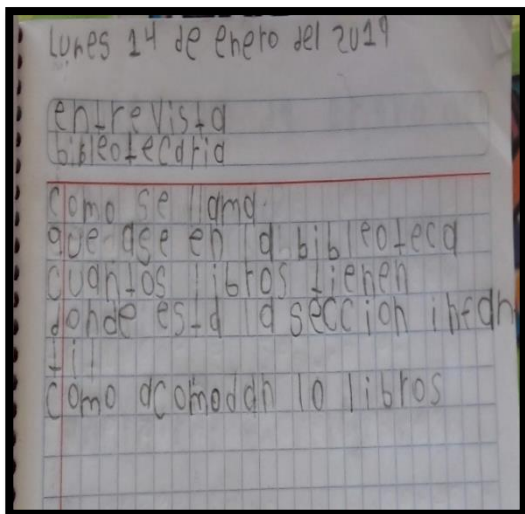 Lunes 14 de enero del 2019
entrevista
bibleotecaria
como se llama.
que ase en la bibleoteca
cuantos libros tienen
donde esta la seccion infan
til
como acomodan lo libros